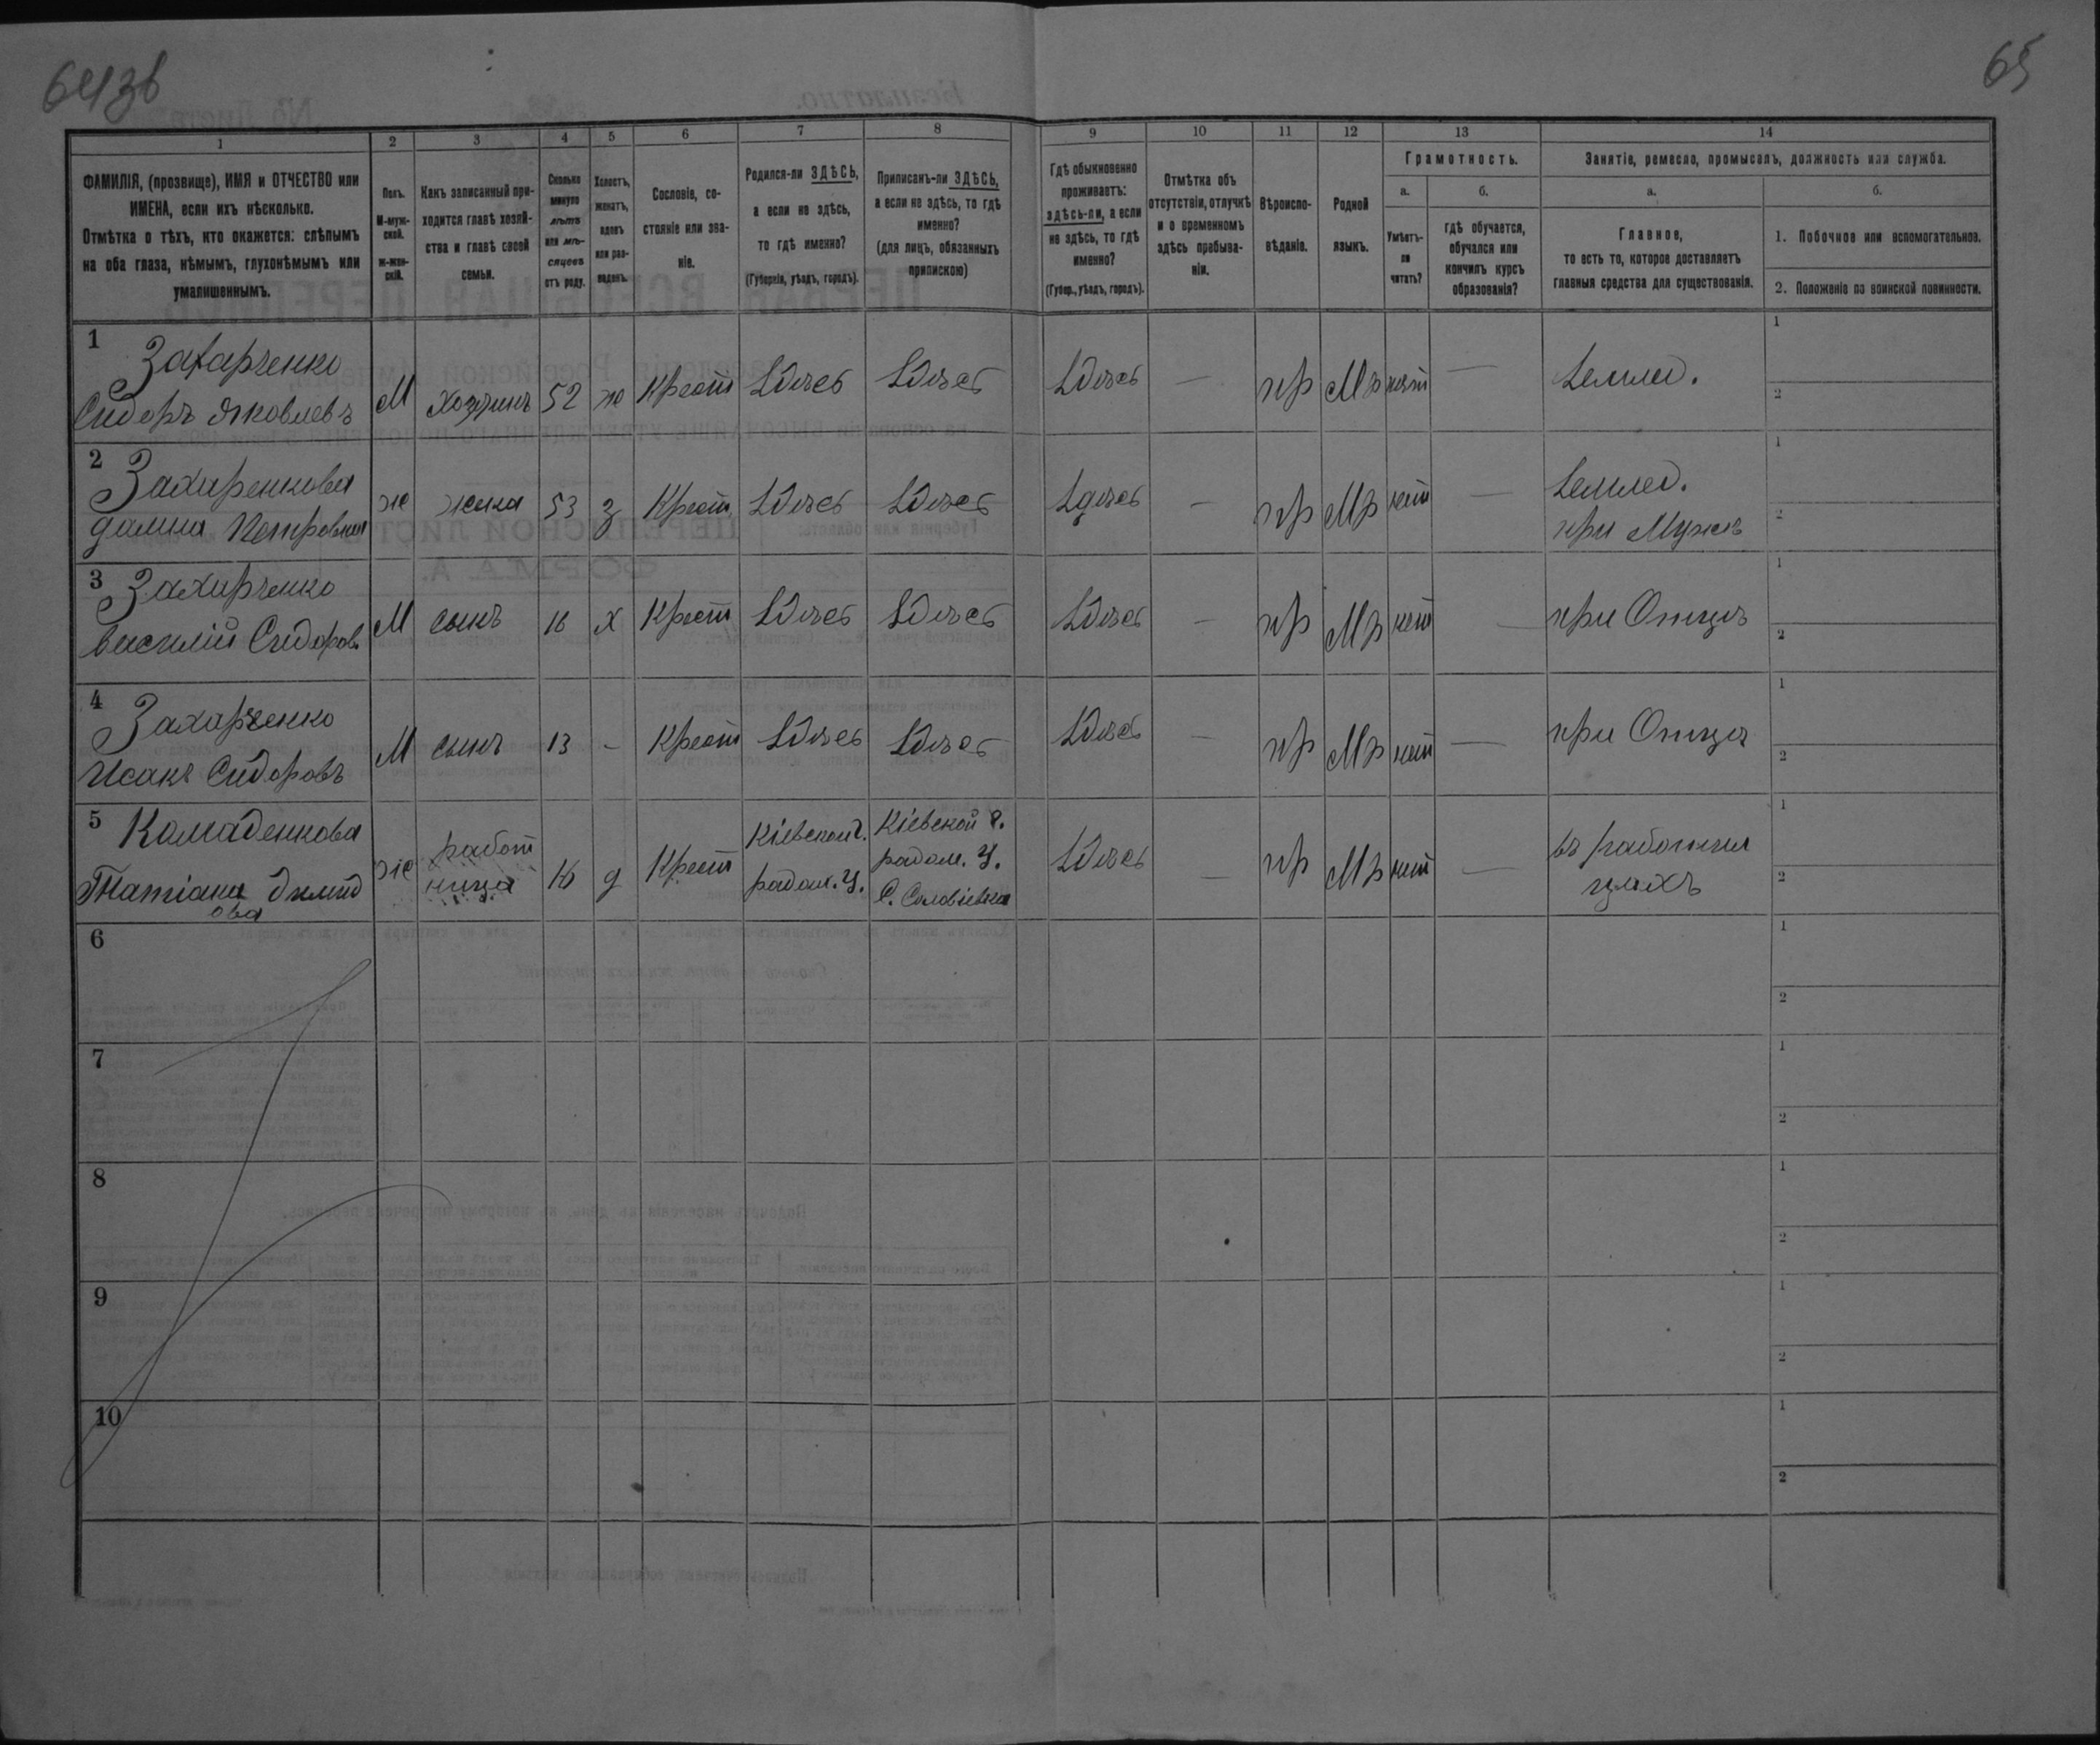 64зв
65
1 2 3 4 5 6 7 8 9 10 11 12 13 14
ФАМИЛІЯ, (прозвище), ИМЯ и ОТЧЕСТВО или ИМЕНА, если ихъ нѣсколько.
Отмѣтка о тѣхъ, кто окажется: слѣпымъ на оба глаза, нѣмымъ, глухонѣмымъ или умалишеннымъ.
Полъ. М-мужской. Ж-женскій.
Какъ записанный приходится главѣ хозяйства и главѣ своей семьи.
Сколько минуло лѣтъ или мѣсяцевъ отъ роду.
Холостъ, женатъ, вдовъ или разведенъ.
Сословіе, состояніе или званіе.
Родился-ли ЗДѢСЬ, а если не здѣсь, то гдѣ именно?
(Губернія, уѣздъ, городъ).
Приписанъ-ли ЗДѢСЬ, а если не здѣсь, то гдѣ именно?
(для лицъ, обязанныхъ припискою)
Гдѣ обыкновенно проживаетъ: здѣсь-ли, а если не здѣсь, то гдѣ именно?
(Губер., уѣздъ, городъ).
Отмѣтка объ отсутствіи, отлучкѣ и о временномъ здѣсь пребываніи.
Вѣроисповѣданіе.
Родной языкъ.
Грамотность.
а. Умѣетъ-ли читать?
б. гдѣ обучается, обучался или кончилъ курсъ образованія?
Занятіе, ремесло, промыселъ, должность или служба.
а. Главное, то есть то, которое доставляетъ главныя средства для существованія.
б.
1. Побочное или вспомогательное.
2. Положеніе по воинской повинности.
1 Захарченко Сидоръ Яковлевъ М Хозяинъ 52 ж Крест Здѣсь Здѣсь Здѣсь — пр Мр нѣт — Землед. 1 2
2 Захаренкова Петровна ж жена 53 з Крест. Здѣсь Здѣсь Здѣсь — пр Мр нет — Землед. при Мужѣ 1 2
3 Захарченко Василій Сидоров М сынъ 16 х Крест Здѣсь Здѣсь Здѣсь — пр Мр нет — при Отцѣ 1 2
4 Захарченко Исакъ Сидоровъ М сынъ 13 - Крест Здѣсь Здѣсь Здѣсь — пр Мр нет — при Отца 1 2
5 Татіана ж работница 16 д Крест Кіевской г. радом. У. Кіевской г. радом. У. С. Соловіевка Здѣсь — пр Мр нет — въ 1 2
6 1 2
7 1 2
8 1 2
9 1 2
10 1 2